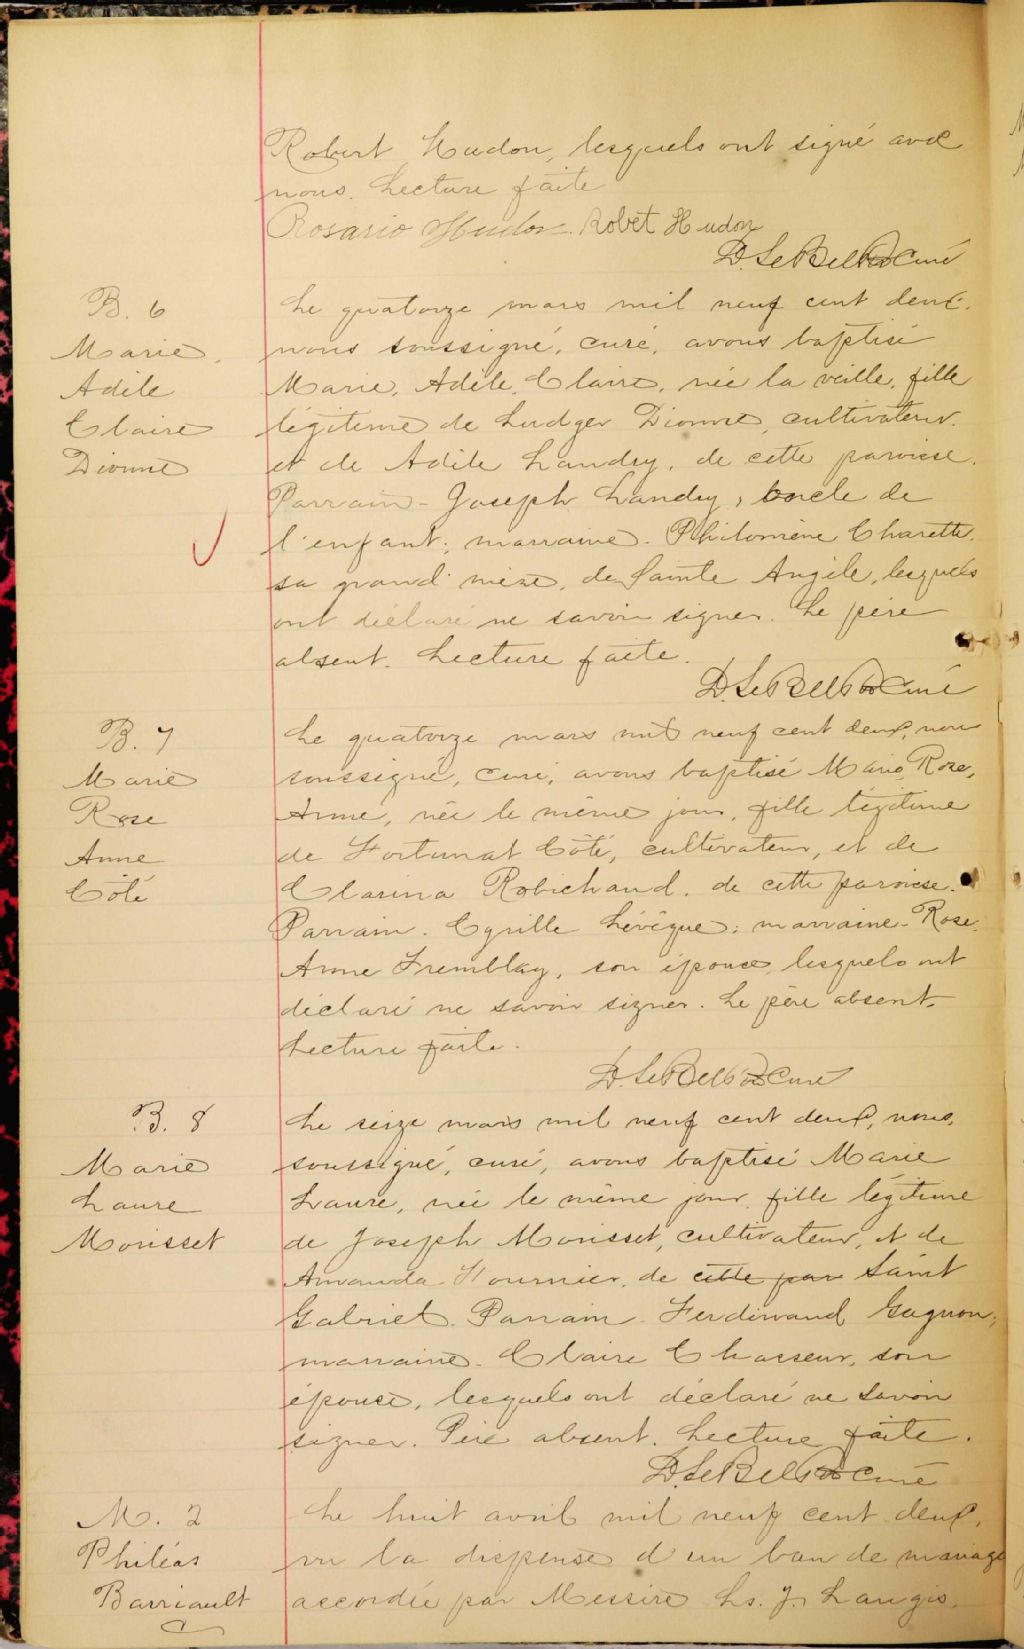 Robert Hudon, lesquels ont signé avec
nous. Lecture faite
Rosario Hudon. Robet Hudon
D. LeBel Ptre Curé
B. 6
Marie
Adèle
Claire
Dionne
Le quatorze mars mil neuf cent deux.
nous soussigné, curé, avons baptisé
Marie, Adèle, Claire, née la veille, fille
légitime de Ludger Dionne, cultivateur
et de Adèle Landry, de cette paroisse.
Parrain - Joseph Landry, oncle de
l'enfant; marraine - Philomène Charette,
sa grand'mère, de Sainte Angèle, lesquels
ont déclaré ne savoir signer. Le père
absent. Lecture faite.
D. LeBel Ptre Curé
B. 7
Marie
Rose
Anne
Côté
Le quatorze mars mil neuf cent deux, nous
soussigné, curé, avons baptisé Marie, Rose,
Anne, née le même jour, fille légitime
de Fortunat Côté, cultivateur, et de
Clarina Robichaud, de cette paroisse.
Parrain - Cyrille Lévêque; marraine - Rose
Anne Tremblay, son épouse, lesquels ont
déclaré ne savoir signer. Le père absent.
Lecture faite.
D. LeBel Ptre Curé
B. 8
Marie
Laure
Morisset
Le seize mars mil neuf cent deux, nous,
soussigné, curé, avons baptisé Marie
Laure, née le même jour, fille légitime
de Joseph Morisset, cultivateur, et de
Amanda Fournier, de cette par Saint
Gabriel. Parrain - Ferdinand Gagnon;
marraine - Claire Chasseur, son
épouse, lesquels ont déclaré ne savoir
signer. Père absent. Lecture faite.
D. LeBel Ptre Curé
M. 2
Philéas
Barriault
Le huit avril mil neuf cent deux,
vu la dispense d'un ban de mariage
accordée par Messire Ls. J. Langis,